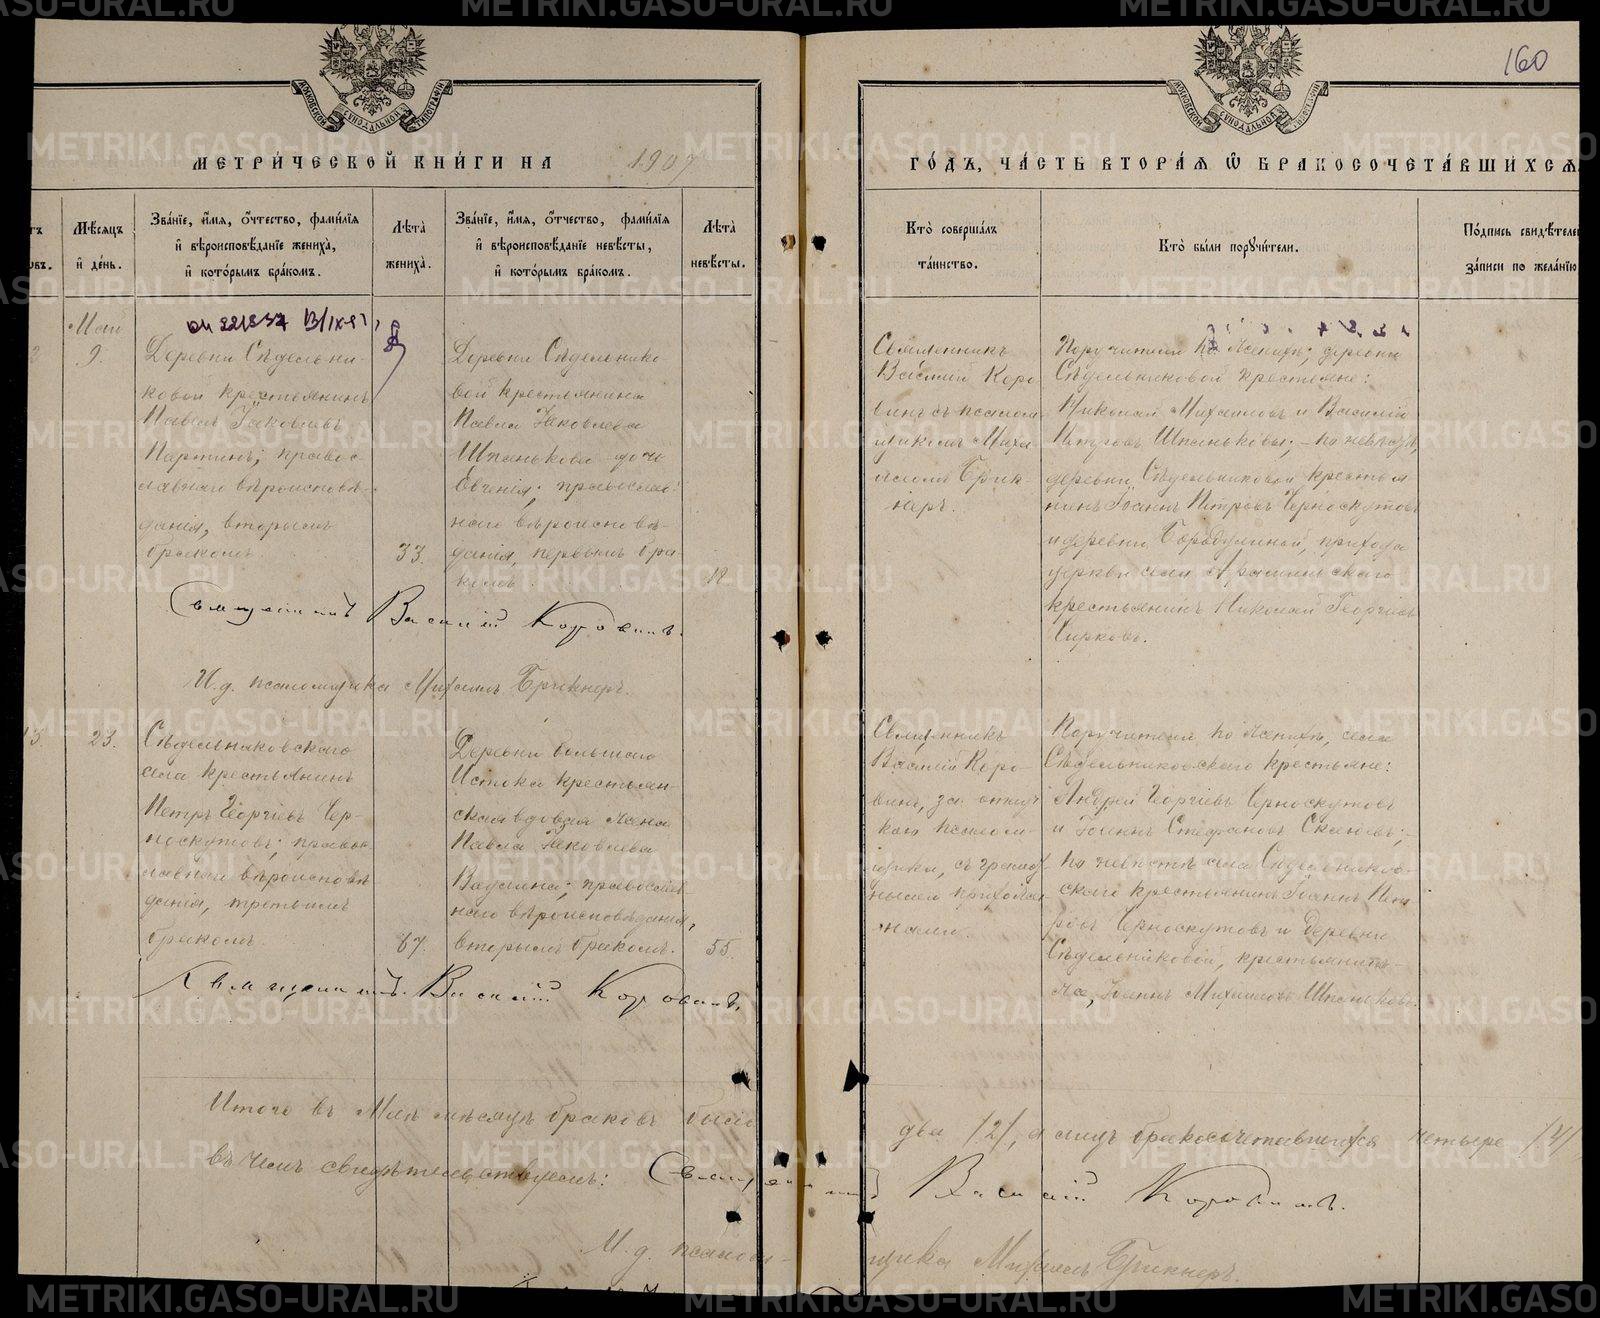 160
МЕТРИ́ЧЕСКОЙ КНИ́ГИ НА 1907
ГО́ДЪ, ЧА́СТЬ ВТОРА́Я Ѿ БРАКОСОЧЕТА́ВШИХСЯ.
Мѣ́сяцъ и҆ де́нь.
Зва́нїе, и҆́мя, ѻ҆́тчество, фами́лїя и҆ вѣроисповѣ́данїе жениха̀, и҆ кото́рымъ бра́комъ.
Лѣ́та жениха̀.
Зва́нїе, и҆́мя, ѻ҆́тчество, фами́лїя и҆ вѣроисповѣ́данїе невѣ́сты, и҆ кото́рымъ бра́комъ.
Лѣ́та невѣ́сты.
Кто̀ соверша́лъ та́инство.
Кто̀ бы́ли порꙋчи́тели.
По́дпись свидѣ́теле
за́писи по жела́нїю
Май
9.
Деревни Сѣдельни-
ковой крестьянинъ
Павелъ Іаковлевъ
Партинъ; правос-
лавнаго вѣроисповѣ-
данія, вторымъ
бракомъ.
33.
Деревни Сѣдельнико
вой крестьянина
Павла Іаковлева
Шпанькова дочь
Евгенія; православ
наго вѣроисповѣ-
данія, первымъ бра
комъ.
18
Священникъ
Василій Коро
винъ съ псалом
щикомъ Миха
иломъ Брик-
неръ.
Поручители по женихѣ; деревни
Сѣдельниковой крестьяне:
Николай Михаиловъ и Василій
Петровъ Шпаньковы; – по невѣстѣ,
деревни Сѣдельниковой крестья
нинъ Іоаннъ Петровъ Черноскутовъ
и деревни Бородулиной, прихода
церкви села Арамильскаго
крестьянинъ Николай Георгіевъ
Чирковъ.
Священникъ Василій Коровинъ.
И.д. псаломщика Михаилъ Брикнеръ.
13.
23.
Сѣдельниковскаго
села крестьянинъ
Петръ Георгіевъ Чер-
носкутовъ; правос
лавнаго вѣроисповѣ
данія, третьимъ
бракомъ.
67.
Деревни Большаго
Истока крестьян-
ская вдовая жена
Павла Іаковлева
наго вѣроисповѣданія,
вторымъ бракомъ.
55.
Священникъ
Василій Коро-
винъ, за
псалом-
щика, съ
Поручители по женихѣ, села
Сѣдельниковскаго крестьяне:
Андрей Георгіевъ Черноскутовъ
и Іоаннъ Стефановъ
по невѣстѣ села Сѣдельников-
скаго крестьянинъ Іоаннъ Пет
ровъ Черноскутовъ и деревни
Сѣдельниковой, крестьянинъ
же, Іоаннъ Михаиловъ Шпаньковъ.
Священникъ Василій Коровинъ.
Итого въ Маѣ мѣсяцѣ браковъ было два /2/, а лицъ бракосочетавшихся четыре /4/,
въ чемъ свидѣтельствуемъ: Священникъ Василій Коровинъ.
И.д. псаломщика Михаилъ Брикнеръ.
METRIKI.GASO-URAL.RU